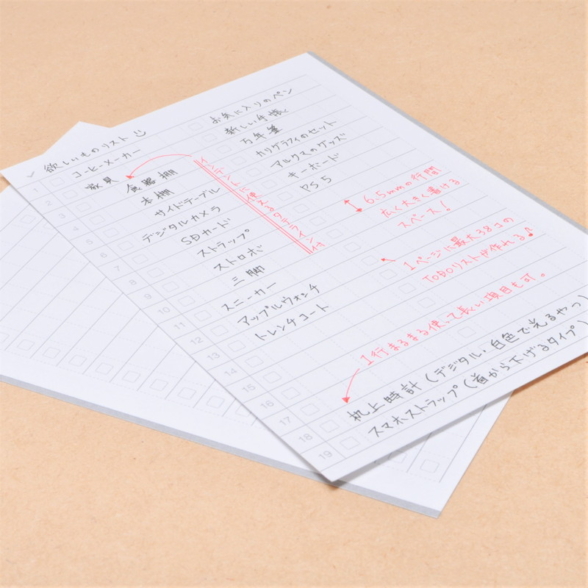 欲しいものリスト
1 コーヒーメーカー
2 家具 食器棚
3 本棚
4 サイドテーブル
5 デジタルカメラ
6 SDカード
7 ストラップ
8 ストロボ
9 三脚
10 スニーカー
11 アップルウォッチ
12 トレンチコート
13
14
15
16
17
18 机上時計(デジタル・白色で光るやつ
19 スマホストラップ(首から下げるタイプ)
お気に入りのペン
新しい手帳
万年筆
カリグラフィのセット
キーボード
PS5
インデントに使えるタテライン付
6.5mmの行間
書ける
スペース!
1ページに最大38コの
TODOリストが作れる♪
1行まるまる使って長い項目も